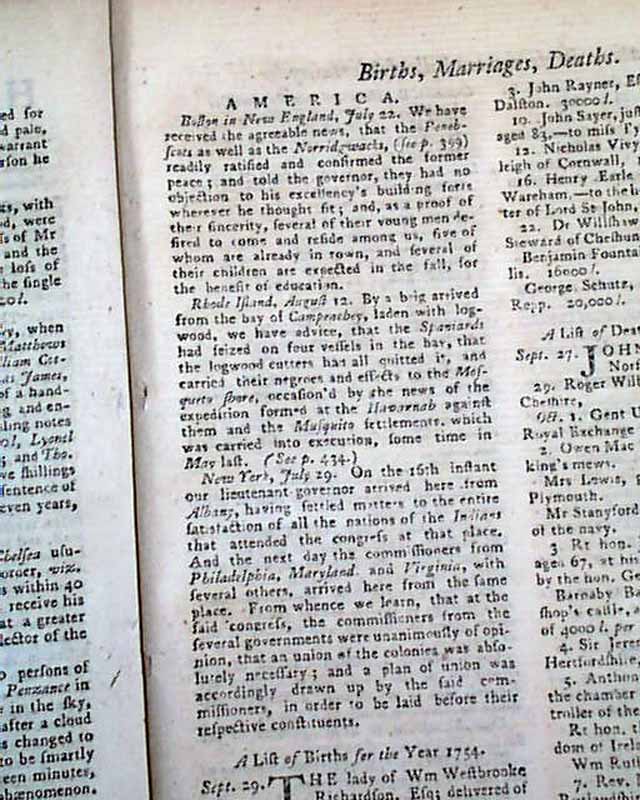 ed for
d pale,
warrant
rson he
ks, with
od, were
is of Mr
and the
e loss of
the single
20l.
ry, when
Matthews
lliam Cot-
as James,
of a hand-
g, and en-
sling notes
ol, Lyonel
; and Tho.
ve shillings
sentence of
even years,
Chelsea usu-
orner, viz.
s within 40
receive his
at a greater
lector of the
o persons of
Penzance in
e in the sky,
after a cloud
s changed to
to be smartly
teen minutes,
phænomenon.
Births, Marriages, Deaths.
AMERICA.
Boston in New England, July 22. We have
received the agreeable news, that the Penob-
scots as well as the Norridgwacks, (see p. 399)
readily ratified and confirmed the former
peace; and told the governor, they had no
objection to his excellency's building forts
wherever he thought fit; and, as a proof of
their sincerity, several of their young men de-
sired to come and reside among us, five of
whom are already in town, and several of
their children are expected in the fall, for
the benefit of education.
Rhode Island, August 12. By a brig arrived
from the bay of Campeachey, laden with log-
wood, we have advice, that the Spaniards
had seized on four vessels in the bay, that
the logwood cutters had all quitted it, and
carried their negroes and effects to the Mos-
queto shore, occasion'd by the news of the
expedition formed at the Havannah against
them and the Musquito settlements, which
was carried into execution, some time in
May last. (See p. 434.)
New York, July 29. On the 16th instant
our lieutenant-governor arrived here from
Albany, having settled matters to the entire
satisfaction of all the nations of the Indians
that attended the congress at that place.
And the next day the commissioners from
Philadelphia, Maryland and Virginia, with
several others, arrived here from the same
place. From whence we learn, that at the
said congress, the commissioners from the
several governments were unanimously of opi-
nion, that an union of the colonies was abso-
lutely necessary; and a plan of union was
accordingly drawn up by the said com-
missioners, in order to be laid before their
respective constituents.
A List of Births for the Year 1754.
Sept. 29. THE lady of Wm Westbrooke
Richardson, Esq; delivered of
3. John Rayner, Es
Dalston. 30000l.
10. John Sayer, just
aged 83,—to miss
12. Nicholas Vivy
leigh of Cornwall,
16. Henry Earle
Wareham,—to the
ter of Lord St John,
22. Dr Willshaw
Steward of Cheshun
Benjamin Fountai
lis. 16000l.
George Schutz,
Repp. 20,000l.
A List of Dea
Sept. 27. JOHN
Norf
29. Roger Will
Cheshire,
Oct. 1. Gent U
Royal Exchange
2. Owen Mac
king's mews.
Mrs Lewis, g
Plymouth.
Mr Stanyford
of the navy.
3. Rt hon.
aged 67, at his
by the hon. Ge
Barnaby Ba
shop's castle,
of 4000l. per
4. Sir Jerem
Hertfordshire
5. Anthon
the chamber
troller of the
Rt hon.
dom of Irela
Wm Rutl
7. Rev.